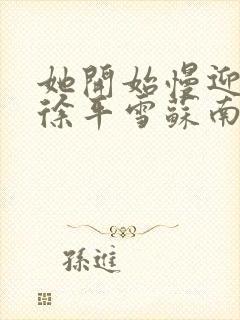 她開始慢迎
徐平雪蘇南
孫進